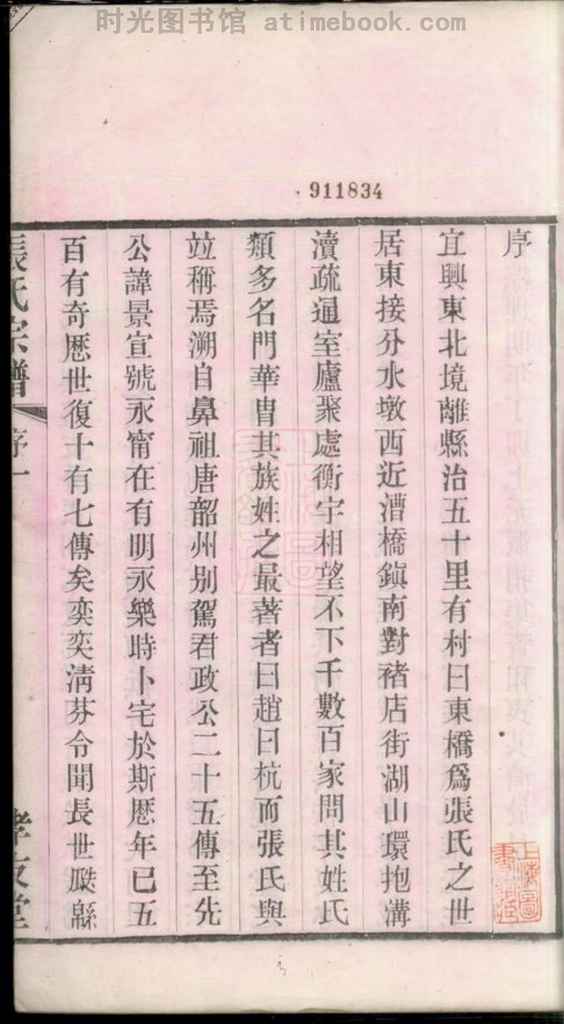 时光图书馆 atimebook.com
911834
序
宜興東北境離縣治五十里有村曰東橋爲張氏之世
居東接分水墩西近漕橋鎭南對褚店街湖山環抱溝
瀆疏通室廬聚處衡宇相望不下千數百家問其姓氏
類多名門華胄其族姓之最著者曰趙曰杭而張氏與
竝稱焉溯自鼻祖唐韶州别駕君政公二十五傳至先
公諱景宣號永甯在有明永樂時卜宅於斯歷年已五
百有奇歷世復十有七傳矣奕奕淸芬令聞長世瓞緜
張氏宗譜
序一
孝友堂